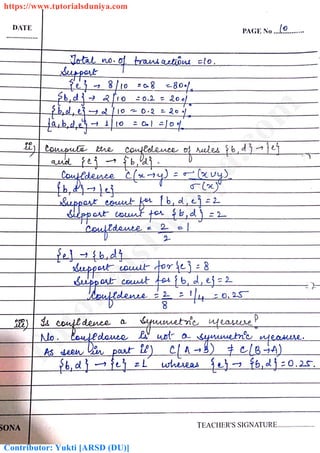 https://www.tutorialsduniya.com
DATE
PAGE No 10
Total no. of transactions = 10.
Support
{e} → 8/10 = 0.8 = 80%
{b,d} → 2/10 = 0.2 = 20%
{b,d,e} → 2/10 = 0.2 = 20%
{a,b,d,e} → 1/10 = 0.1 = 10%
II) Compute the confidence of rules {b,d} → {e}
and {e} → {b,d}.
Confidence C(x→y) = σ(x∪y)
σ(x)
{b,d} → {e}
Support count for {b, d, e} = 2
Support count for {b,d} = 2
Confidence = 2 = 1
2
{e} → {b,d}
Support count for {e} = 8
Support count for {b, d, e} = 2
Confidence = 2 = 1/4 = 0.25
8
III) Is confidence a symmetric measure?
No. Confidence is not a symmetric measure.
As seen in part II) C(A→B) ≠ C(B→A)
{b,d} → {e} = 1 whereas {e} → {b,d} = 0.25.
SONA
TEACHER'S SIGNATURE
Contributor: Yukti [ARSD (DU)]